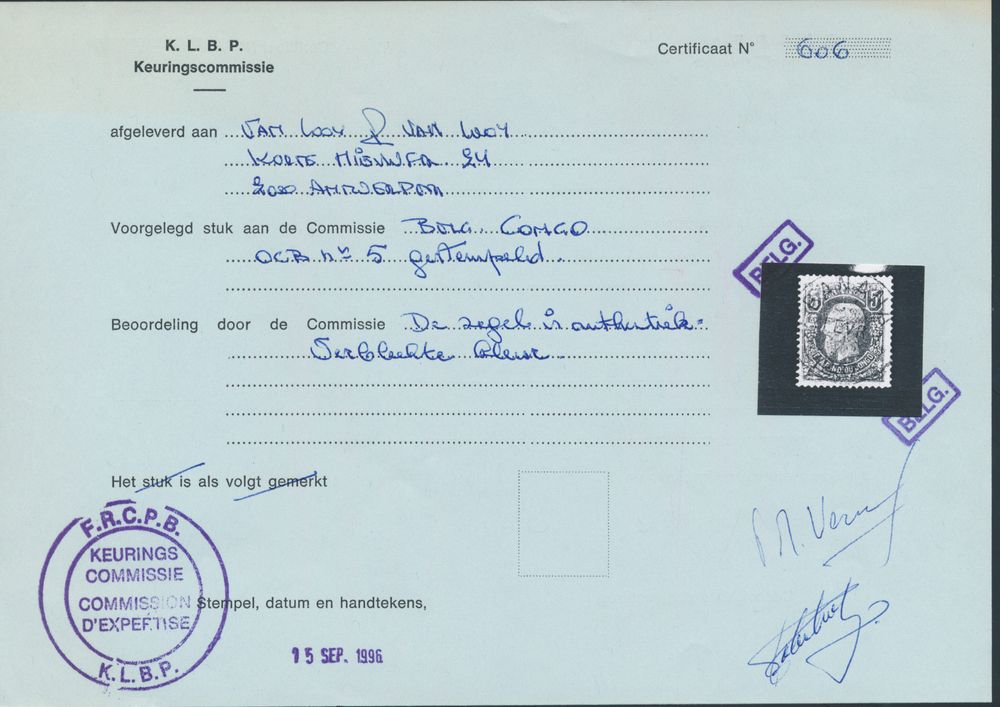 K. L. B. P.
Keuringscommissie
Certificaat N° 606
afgeleverd aan VAN LOOY & VAN LOOY
KORTE NIEUWER 24
2000 ANTWERPEN
Voorgelegd stuk aan de Commissie BELG. CONGO
OCB nr 5 gestempeld.
BELG.
Beoordeling door de Commissie De zegel is authentiek -
Verbleekte kleur
BANANA
5
BELG.
Het stuk is als volgt gemerkt
F.R.C.P.B.
KEURINGS
COMMISSIE
COMMISSION
D'EXPERTISE
K.L.B.P.
Stempel, datum en handtekens,
15 SEP. 1996